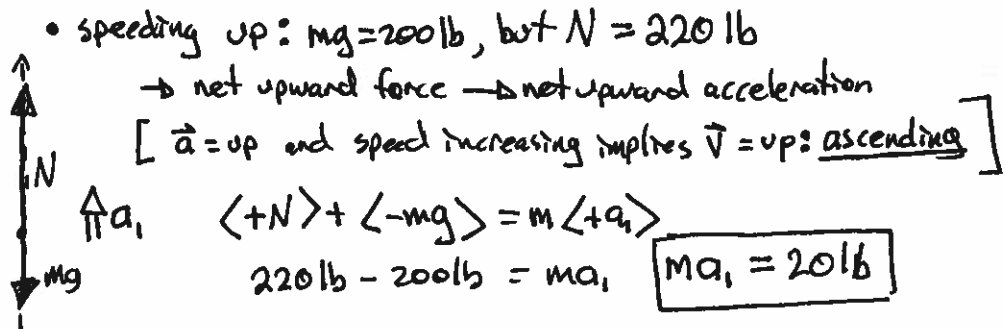 • speeding up: mg=200lb, but N = 220 lb
→ net upward force → net upward acceleration
[ a⃗ = up and speed increasing implies v⃗ = up: ascending ]
N
⇑a₁ ⟨+N⟩ + ⟨-mg⟩ = m⟨+a₁⟩
mg 220lb - 200lb = ma₁ ma₁ = 20lb